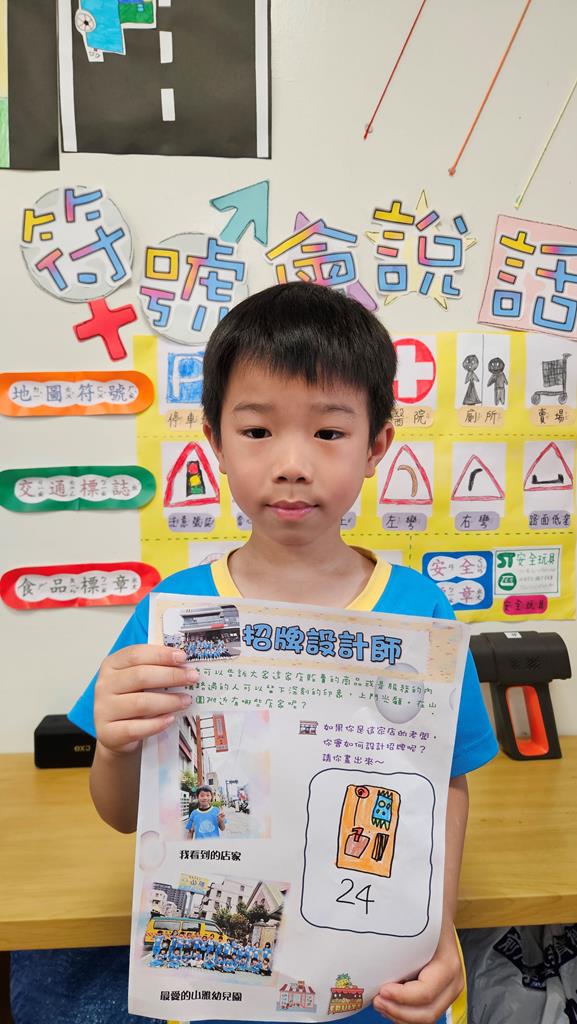 符號會說話
地圖符號
ㄉㄧˋ ㄊㄨˊ ㄈㄨˊ ㄏㄠˋ
停車
醫院
廁所
賣場
交通標誌
ㄐㄧㄠ ㄊㄨㄥ ㄅㄧㄠ ㄓˋ
注意號誌
左彎
右彎
路面低窪
食品標章
ㄕˊ ㄆㄧㄣˇ ㄅㄧㄠ ㄓㄤ
安全
標章
ST安全玩具
安全玩具
招牌設計師
可以告訴大家這家店販賣的商品或是服務的內
路過的人可以留下深刻的印象,上門光顧,在山
園附近有哪些店家呢?
如果你是這家店的老闆,
你會如何設計招牌呢?
請你畫出來~
24
我看到的店家
最愛的山雅幼兒園
FRUIT